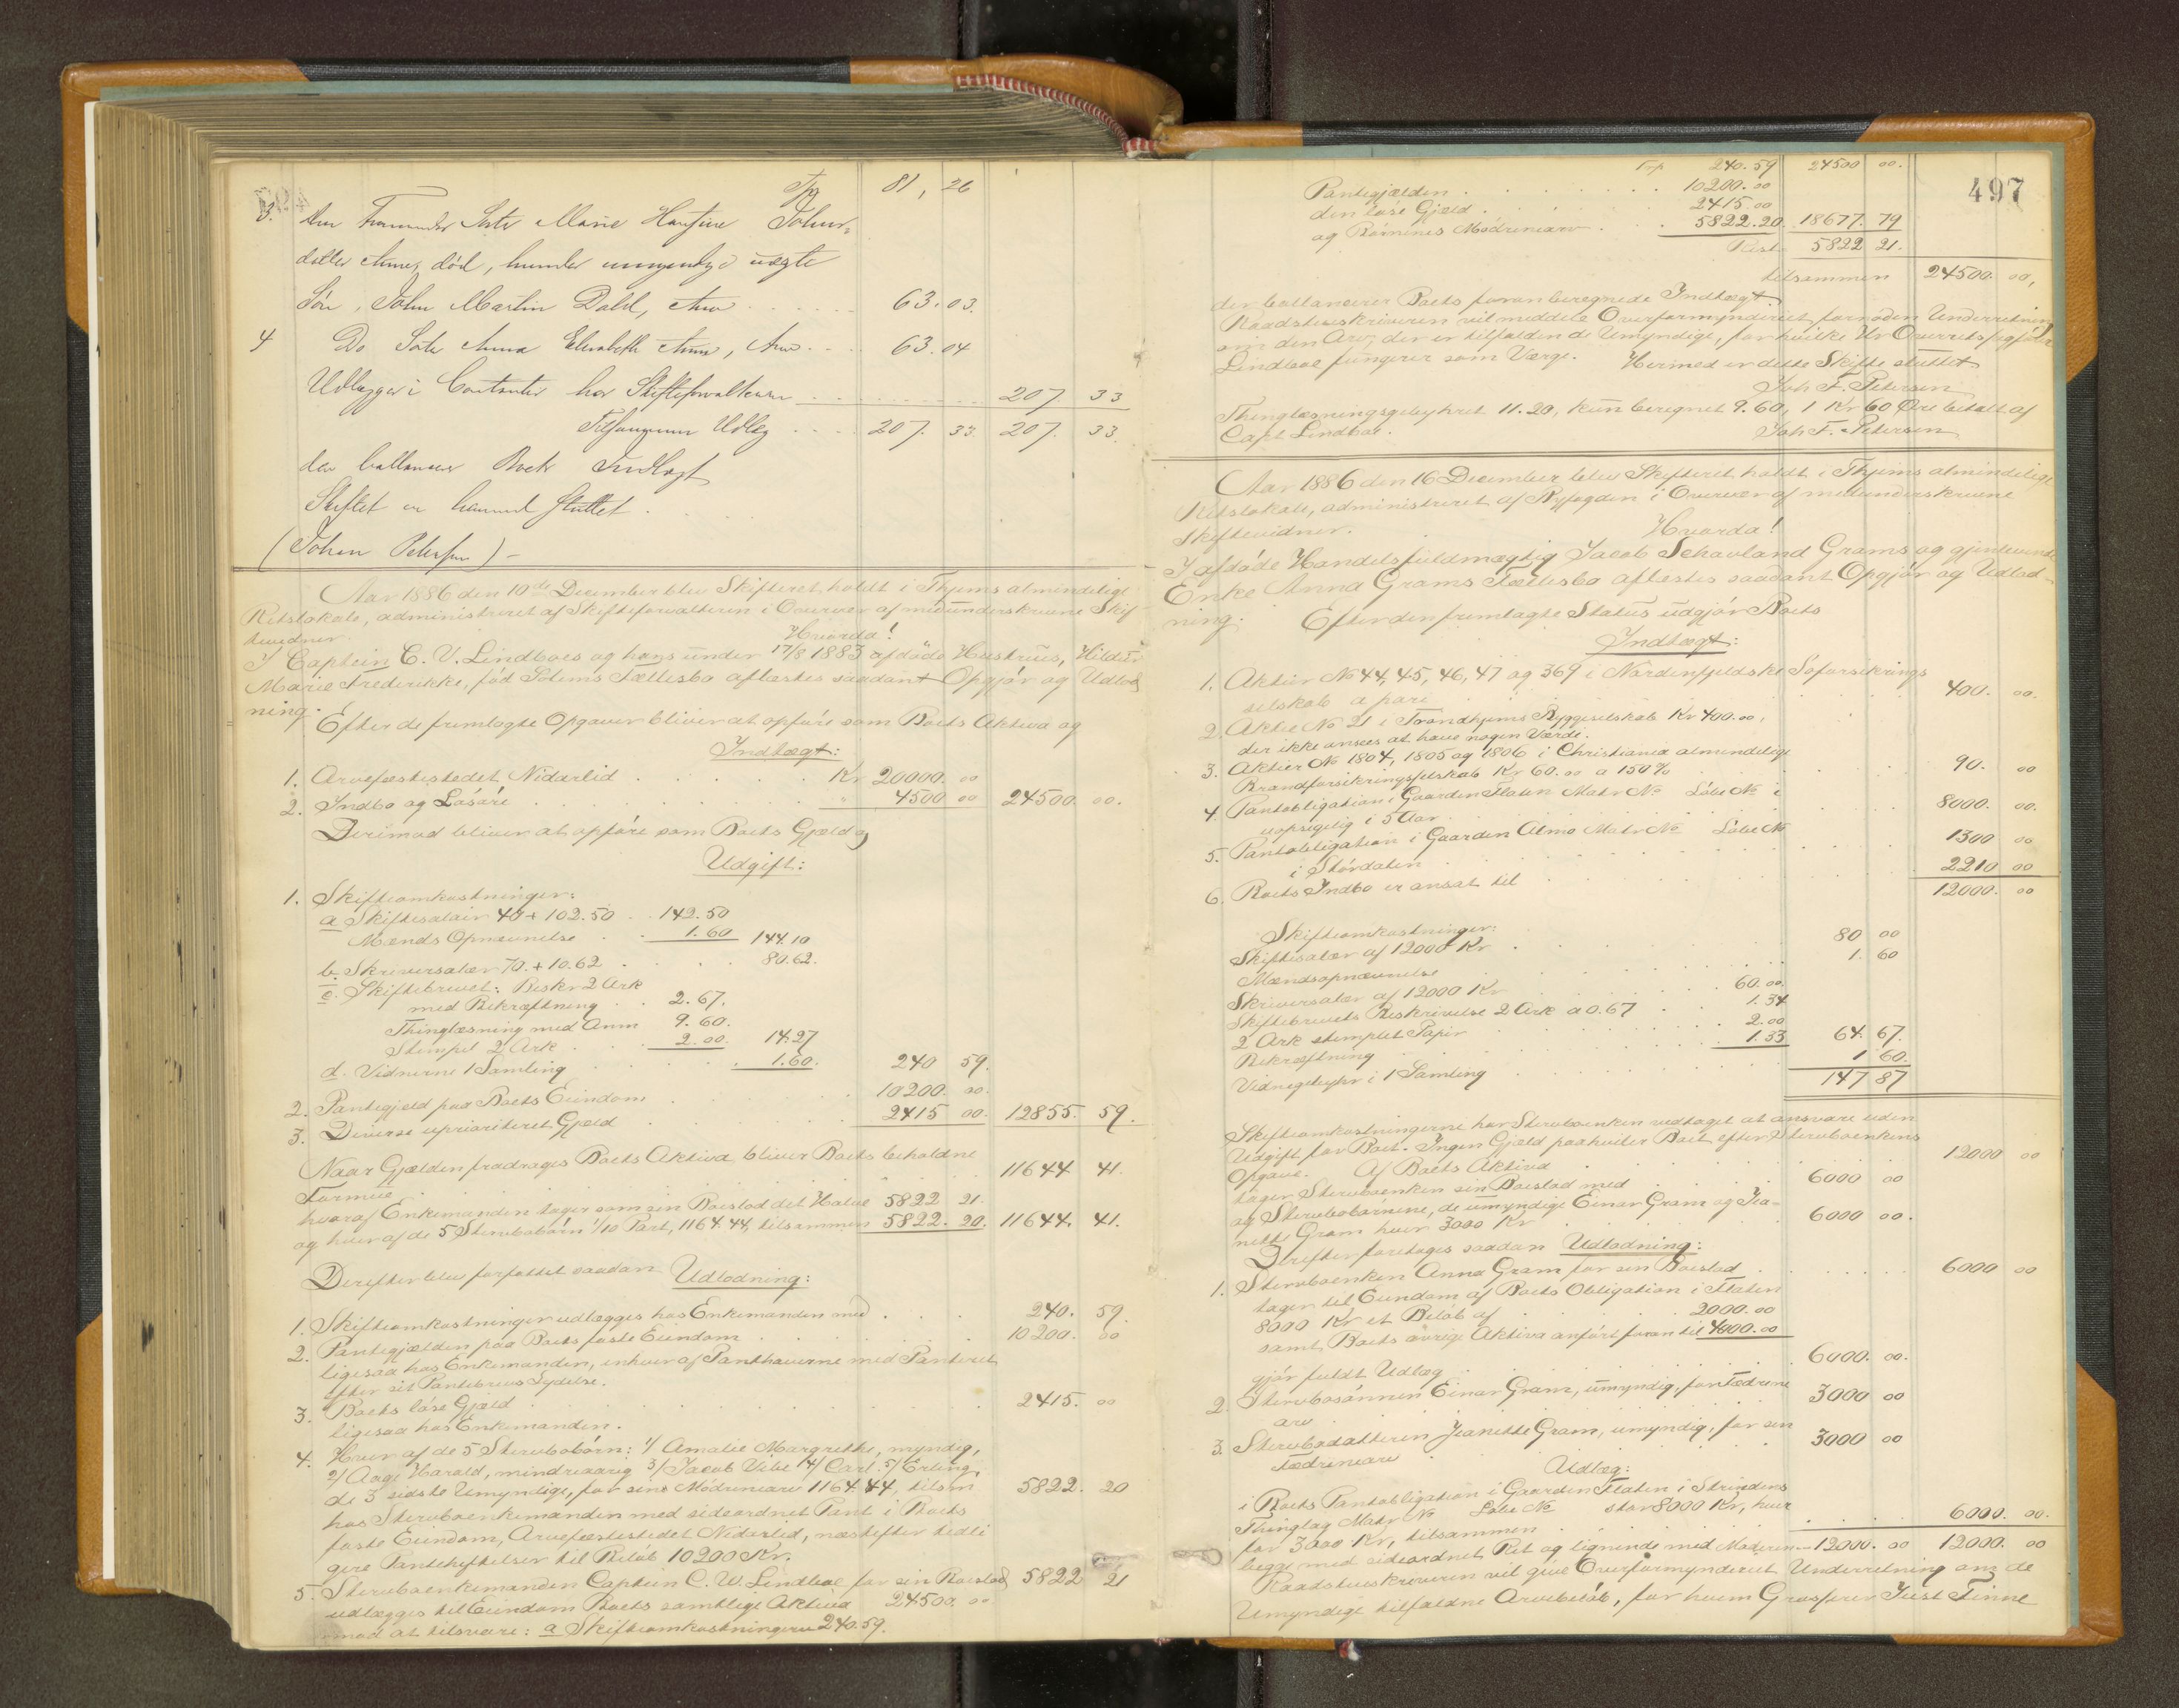 Trp 81, 26
3. den fraværende Søster Marie Hansine Johns-
datter Aune, død, hendes umyndige uægte
Søn, John Martin Dahl, Arv 63.03.
4 Do Søster Anna Elisabeth Aune, Arv 63.04
Udlægges i Contanter hos Skifteforvalteren 207 33
Tilsammen Udlæg 207. 33 207. 33.
der ballancerer Boets Indtægt
Skiftet er hermed sluttet.
(Johan Petersen) -
Aar 1886 den 10de December blev Skifteret holdt i Thjems almindelige
Retslokale, administreret af Skifteforvalteren i Overvær af medunderskrevne Skif-
tevidner. Hvorda!
I Captein C. V. Lindboes og hans under 17/8 1883 afdøde Hustrues, Hildur
Marie Frederikke, fød Solems Fællesbo aflæstes saadant Opgjør og Udlod
ning.
Efter de fremlagte Opgaver bliver at opføre som Boets Aktiva og
Indtægt:
1. Arvefæstestedet Nidarlid Kr 20000. 00
2. Indbo og Løsøre " 4500 00 24500. 00.
Derimod bliver at opføre som Boets Gjæld og
Udgift:
1. Skifteomkostninger:
a Skiftesalair 40 + 102.50 142.50
Mænds Opnævnelse 1.60 144.10
b. Skriversalær 70. + 10.62 80.62.
c. Skiftebrevet: Beskr 2 Ark
med Bekræftning 2.67.
Thinglæsning med Anm 9.60.
Stempel 2 Ark 2.00. 14.27
d. Vidnerne 1 Samling 1.60. 240 59.
2. Pantegjæld paa Boets Eiendom 10200. 00.
3. Diverse uprioriteret Gjæld 2415 00. 12855. 59.
Naar Gjælden fradrages Boets Aktiva bliver Boets beholdne
Formue 11644 41.
hvoraf Enkemanden tager som sin Boeslod det Halve 5822. 21.
og hver af de 5 Stervbobørn 1/10 Part, 1164.44, tilsammen 5822. 20. 11644. 41.
Derefter blev forfattet saadan Udlodning:
1. Skifteomkostninger udlægges hos Enkemanden med 240. 59.
2. Pantegjælden paa Boets faste Eiendom 10200. 00
ligesaa hos Enkemanden, enhver af Panthaverne med Panteret
efter sit Pantebrevs Lydelse.
3. Boets løse Gjæld 2415. 00
ligesaa hos Enkemanden.
4. Hver af de 5 Stervbobørn: 1/ Amalie Margrethe, myndig,
2/ Aage Harald, mindreaarig 3/ Jacob Vibe 4/ Carl 5/ Erling,
de 3 sidste Umyndige, for sin Mødrenearv 1164.44, tilsm 5822. 20
hos Stervboenkemanden med sideordnet Pant i Boets
faste Eiendom, Arvefæstestedet Nidarlid, næstefter tidli
gere Pantehæftelser til Beløb 10200 Kr.
5. Stervboenkemanden Captein C. W. Lindboe for sin Boeslod 5822 21
udlægges til Eiendom Boets samtlige Aktiva 24500. 00
mod at tilsvare: a Skifteomkostningerne 240.59.
497
Trp 240.59 24500 00.
Pantegjælden 10200.00
den løse Gjæld 2415.00
og Børnenes Mødrenearv 5822.20. 18677. 79
Rest 5822 21.
tilsammen 24500. 00,
der ballancerer Boets foran beregnede Indtægt.
Raadstueskriveren vil meddele Overformynderiet fornøden Underretning
om den Arv, der er tilfalden de Umyndige, for hvilke Hr Overretssagfører
Lindboe fungerer som Værge. Hermed er dette Skifte sluttet
Joh F. Petersen
Thinglæsningsgebyhret 11.20, kun beregnet 9.60, 1 Kr 60 Øre betalt af
Capt Lindboe. Joh F. Petersen
Aar 1886 den 16 December blev Skifteret holdt i Thjems almindelige
Retslokale, administreret af Byfogden i Overvær af medunderskrevne
Skiftevidner. Hvorda!
I afdøde Handelsfuldmægtig Jacob Schavland Grams og gjenlevende
Enke Anna Grams Fællesbo aflæstes saadant Opgjør og Udlod-
ning. Efter den fremlagte Status udgjør Boets
Indtægt:
1. Aktier No 44, 45, 46, 47 og 369 i Nordenfjeldske Søforsikrings
selskab a pari 400. 00.
2. Aktie No 21 i Trondhjems Byggeselskab Kr 400.00,
der ikke ansees at have nogen Værdi.
3. Aktier No 1804, 1805 og 1806 i Christiania almindelige
Brandforsikringsselskab Kr 60.00 a 150% 90. 00
4. Pantobligation i Gaarden Flaten Matr No Løbe No i
uopsigelig i 5 Aar 8000. 00.
5. Pantobligation i Gaarden Almo Matr No Løbe No
i Størdalen 1300 00
6. Boets Indbo er ansat til 2210 00
12000. 00
Skifteomkostninger:
Skiftesalær af 12000 Kr 80 00
Mændsopnævnelse 1. 60
Skriversalær af 12000 Kr 60.00.
Skiftebrevets Beskrivelse 2 Ark a 0.67 1.34
2 Ark stemplet Papir 2.00
Bekræftning 1.33 64. 67.
Vidnegebyhr i 1 Samling 1 60.
147 87
Skifteomkostningerne har Stervboenken vedtaget at ansvare uden
Udgift for Boet. Ingen Gjæld paahviler Boet efter Stervboenkens
Opgave. Af Boets Aktiva 12000 00
tager Stervboenken sin Boeslod med 6000 00
og Stervbobørnene, de umyndige Einar Gram og Jea-
nette Gram hver 3000 Kr 6000 00.
Derefter foretages saadan Udlodning:
1. Stervboenken Anna Gram for sin Boeslod 6000 00
tager til Eiendom af Boets Obligation i Flaten
8000 Kr et Beløb af 2000.00
samt Boets øvrige Aktiva anført foran til 4000.00
gjør fuldt Udlæg 6000. 00.
2. Stervbosønnen Einar Gram, umyndig, for Fædrene
arv 3000 00
3. Stervbodatteren Jeanette Gram, umyndig, for sin
Fædrenearv 3000 00
Udlæg:
i Boets Pantobligation i Gaarden Flaten i Strindens
Thinglag Matr No Løbe No stor 8000 Kr, hver
for 3000 Kr, tilsammen 6000. 00.
begge med sideordnet Ret og lignende med Moderen 12000. 00 12000. 00
Raadstueskriveren vil give Overformynderiet Underretning om de
Umyndige tilfaldne Arvebeløb, for hvem Grosserer Just Finne